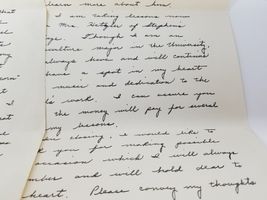 learn more about him.
I am taking lessons now
Mrs. Hetzler of Stephens
ge. Though I am an
culture major in the University,
always have and will continue
have a spot in my heart
music and dedication to the
's work. I can assure you
the money will pay for several
my lessons.
closing, I would like to
you for making possible
occasion which I will always
and will hold dear to
heart. Please convey my thoughts